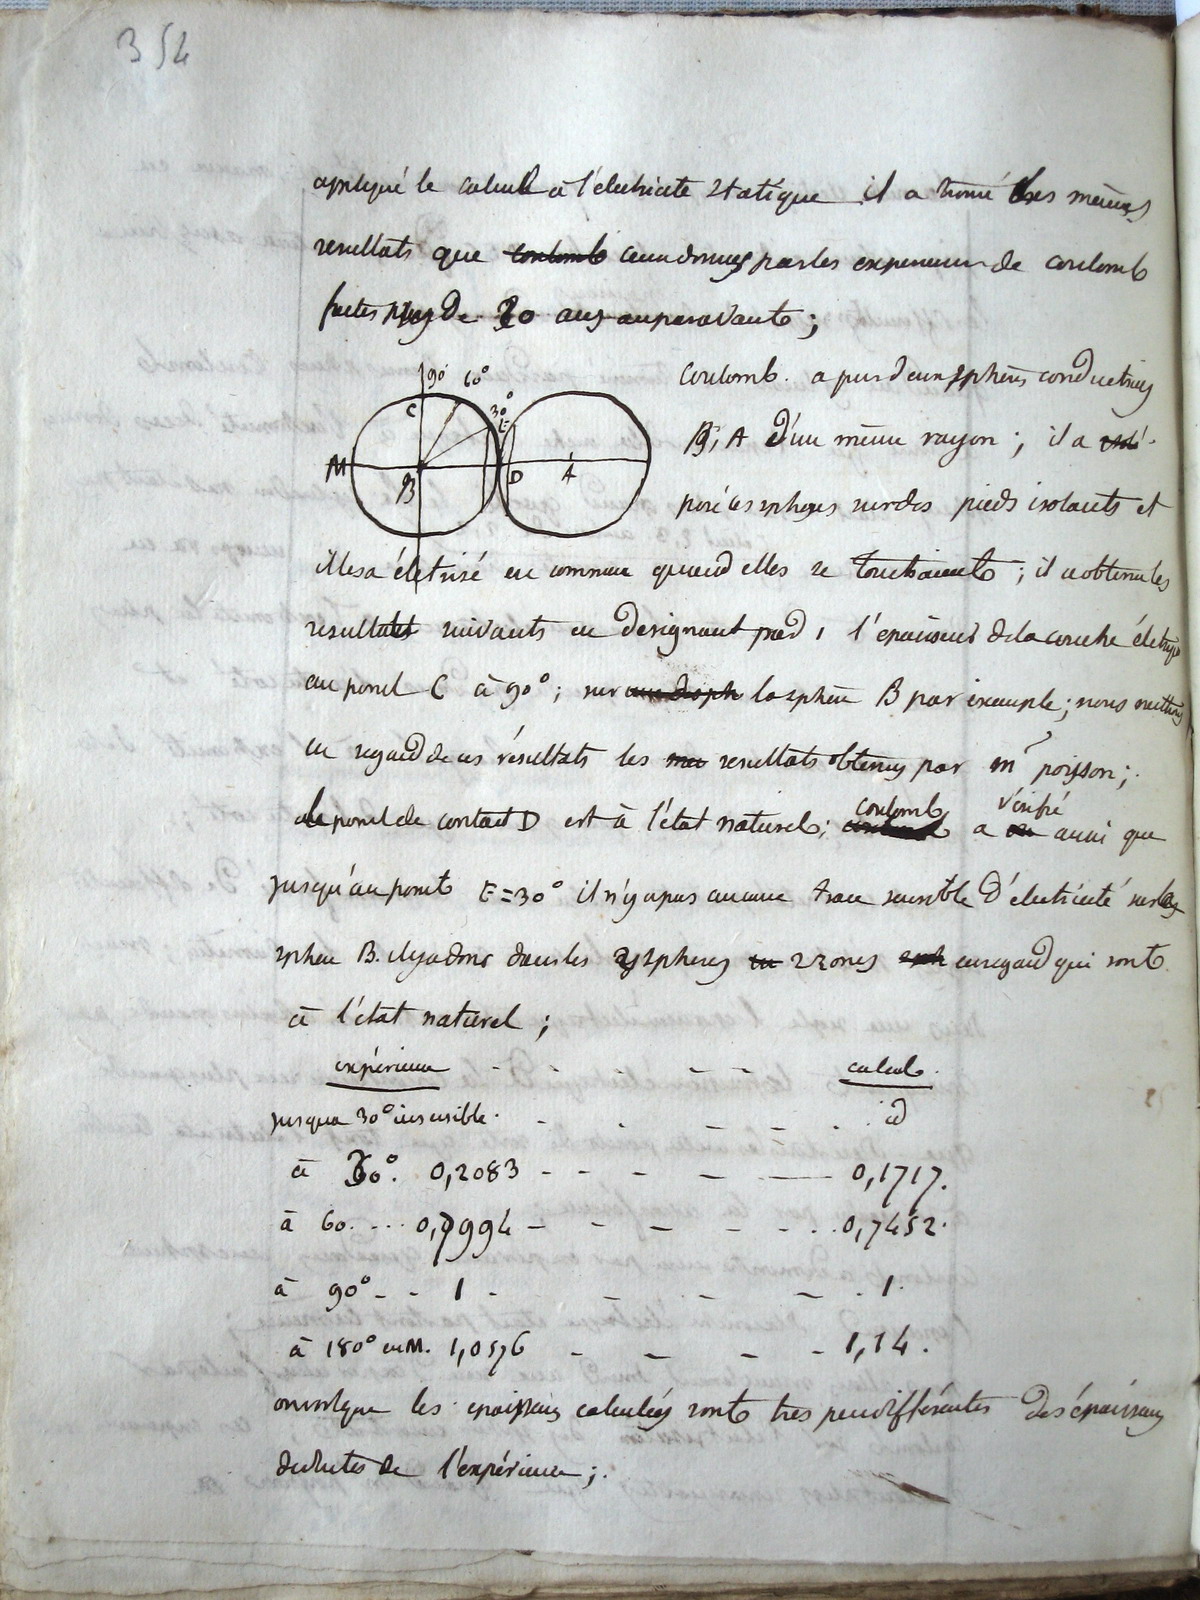 354
appliqué le calcul à l'électricité statique il a trouvé les mêmes
resultats que coulomb ceux donnés par les experiences de coulomb
faites plus de 20 ans auparavant ;
90° 60° 30°
C E
M B D A
Coulomb. a pris deux sphères conductrices
B, A d'un même rayon ; il a
posé les spheres sur des pieds isolants et
il les a életrisé en commun quand elles se touchaient ; il a obtenu les
resultats suivants en designant par 1 l'epaisseur de la couche életrique
au point C à 90° ; sur une de sph la sphère B par exemple ; nous mettons
en regard de ces résultats les resultats obtenus par mr poisson ;
le point de contact D est à l'état naturel ; coulomb a vérifié aussi que
jusqu'au point E = 30° il n'y a pas aucune trace sensible d'électricité sur la
sphere B. il y a donc dans les 2 spheres 2 zones en regard qui sont
à l'état naturel ;
expérience - - - - calcul.
jusqua 30° insensible - - - - id
à 30°. 0,2083 - - - - 0,1717.
à 60. ... 0,7994 - - - - 0,7452.
à 90° - - 1 - - - - 1.
à 180° en M. 1,0576 - - - - 1,14.
on voit que les epaisseurs calculées sont très peu différentes des épaisseurs
deduites de l'expérience ;